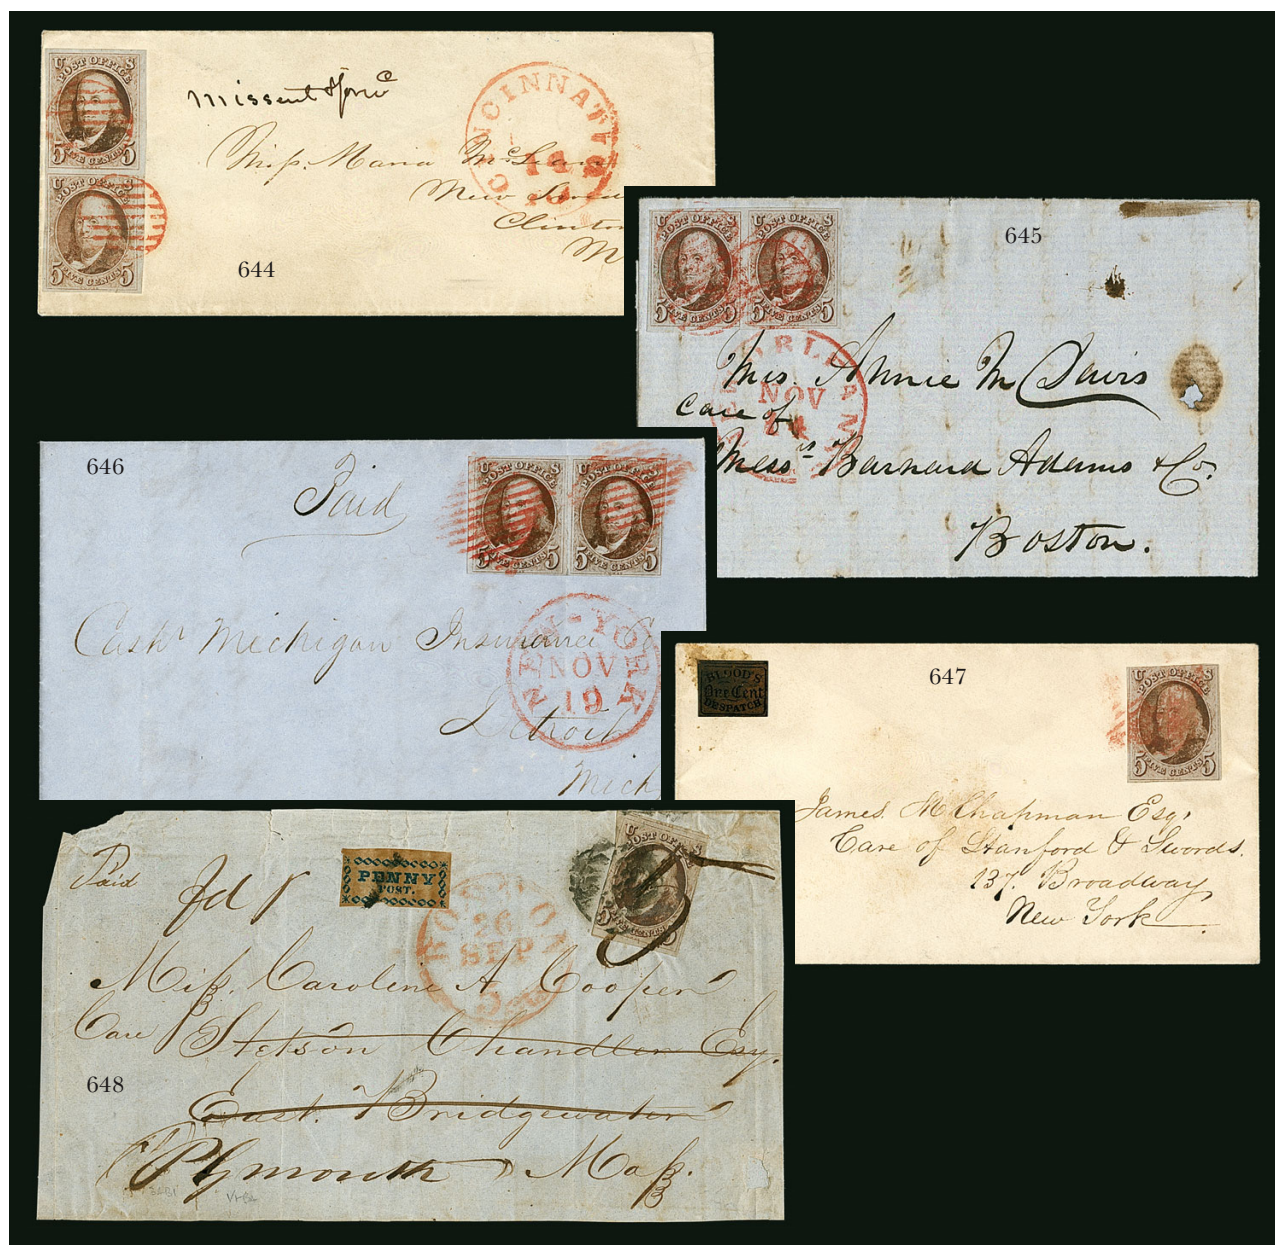 U S
POST OFFICE
5 FIVE CENTS 5
U S
POST OFFICE
5 FIVE CENTS 5
Missent & forw
CINCINNATI
14
Miss Maria
New
Clinton
M
644
U S
POST OFFICE
5 FIVE CENTS 5
U S
POST OFFICE
5 FIVE CENTS 5
645
NOV
Mrs. Annie M Davis
Care of
Messrs Barnard Adams & Co
Boston.
646
Paid
U S
POST OFFICE
5 FIVE CENTS 5
U S
POST OFFICE
5 FIVE CENTS 5
Cashr Michigan Insurance Co
NEW-YORK
NOV
19
Detroit
Mich
BLOOD'S
One Cent
DESPATCH
647
U S
POST OFFICE
5 FIVE CENTS 5
James M Chapman Esq,
Care of Stanford & Swords.
137. Broadway
New York.
Paid
PENNY
POST.
BOSTON
26
SEP
5
U S
POST OFFICE
5 FIVE CENTS 5
Miss. Caroline A. Cooper
Care Stetson Chandler Esq.
648
East. Bridgewater
Plymouth Mass.